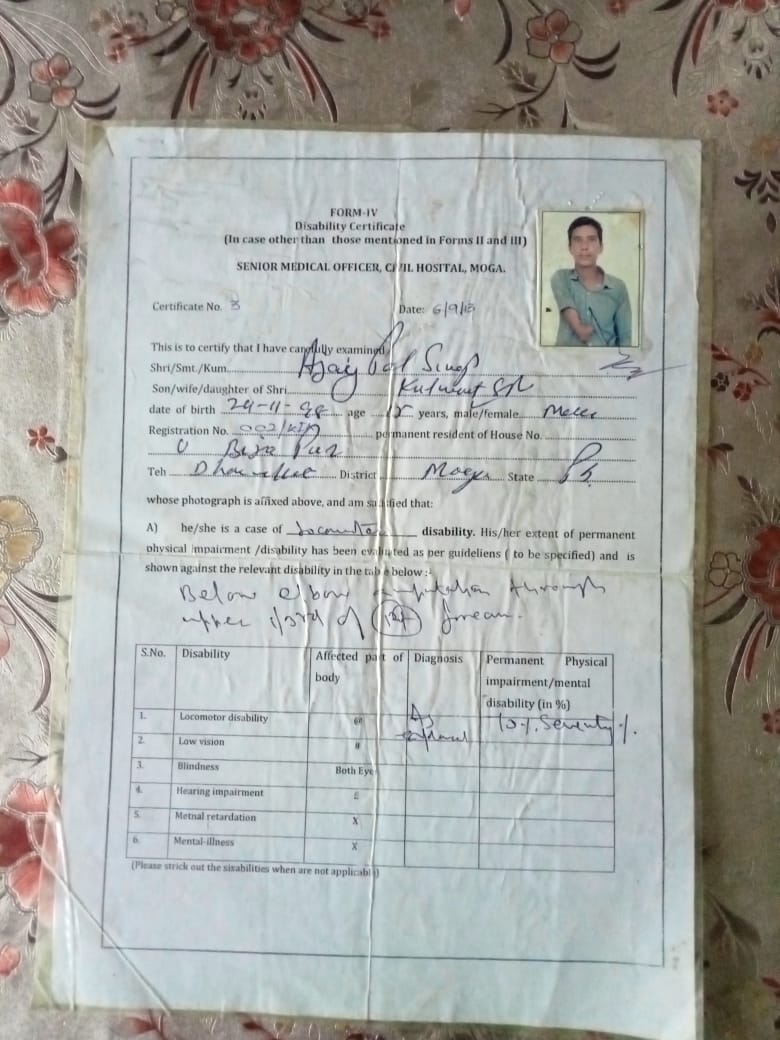 FORM-IV
Disability Certificate
(In case other than those mentioned in Forms II and III)
SENIOR MEDICAL OFFICER, CIVIL HOSITAL, MOGA.
Certificate No. 3 Date: 6/9/13
This is to certify that I have carefully examined
Shri/Smt./Kum. Ajay Pal Singh
Son/wife/daughter of Shri Kulwant
date of birth 24-11-98 age years, male/female. Male
Registration No. permanent resident of House No.
Teh District Moga State Pb.
whose photograph is affixed above, and am satisfied that:
A) he/she is a case of Locomotor disability. His/her extent of permanent
physical impairment /disability has been evaluated as per guideliens ( to be specified) and is
shown against the relevant disability in the table below :-
Below elbow amputation through
upper 1/3rd of forearm.
S.No. Disability Affected part of body Diagnosis Permanent Physical impairment/mental disability (in %)
1. Locomotor disability @ As 70% Seventy %.
2. Low vision #
3. Blindness Both Eye
4. Hearing impairment £
5. Metnal retardation X
6. Mental-illness X
(Please strick out the sisabilities when are not applicable)